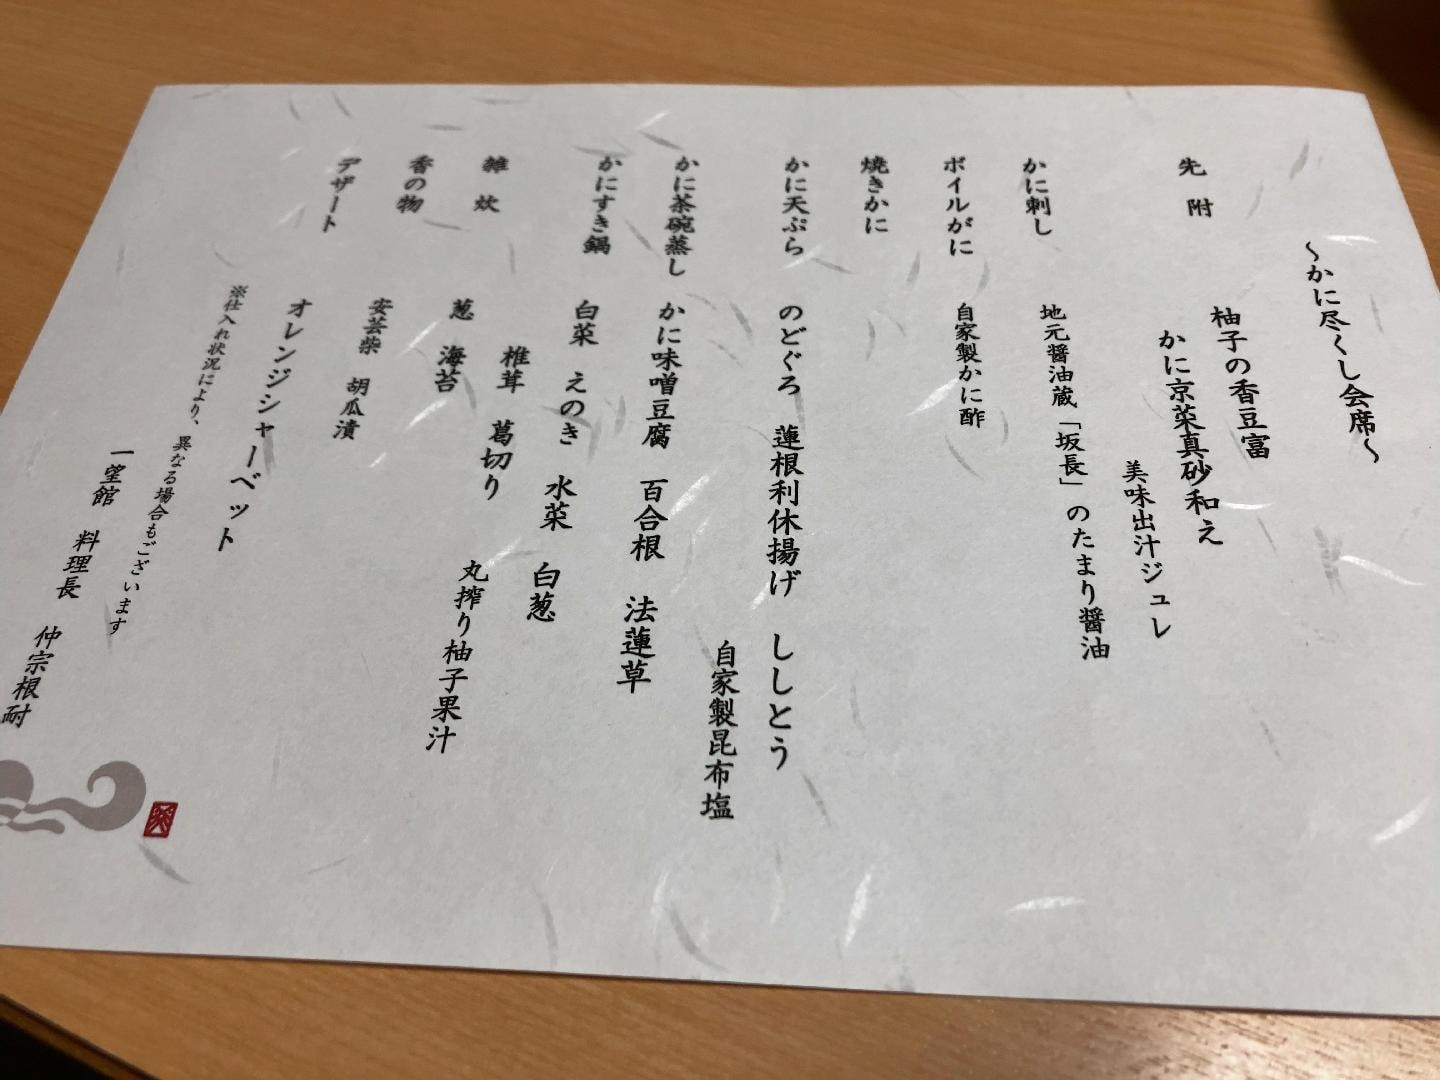 ～かに尽くし会席～
先附
柚子の香豆富
かに京菜真砂和え
美味出汁ジュレ
かに刺し 地元醤油蔵「坂長」のたまり醤油
ボイルがに 自家製かに酢
焼きかに
かに天ぷら のどぐろ 蓮根利休揚げ ししとう
自家製昆布塩
かに茶碗蒸し かに味噌豆腐 百合根 法蓮草
かにすき鍋 白菜 えのき 水菜 白葱
椎茸 葛切り 丸搾り柚子果汁
雑炊 葱 海苔
香の物 安芸柴 胡瓜漬
デザート オレンジシャーベット
※仕入れ状況により、異なる場合もございます
一望館 料理長 仲宗根耐